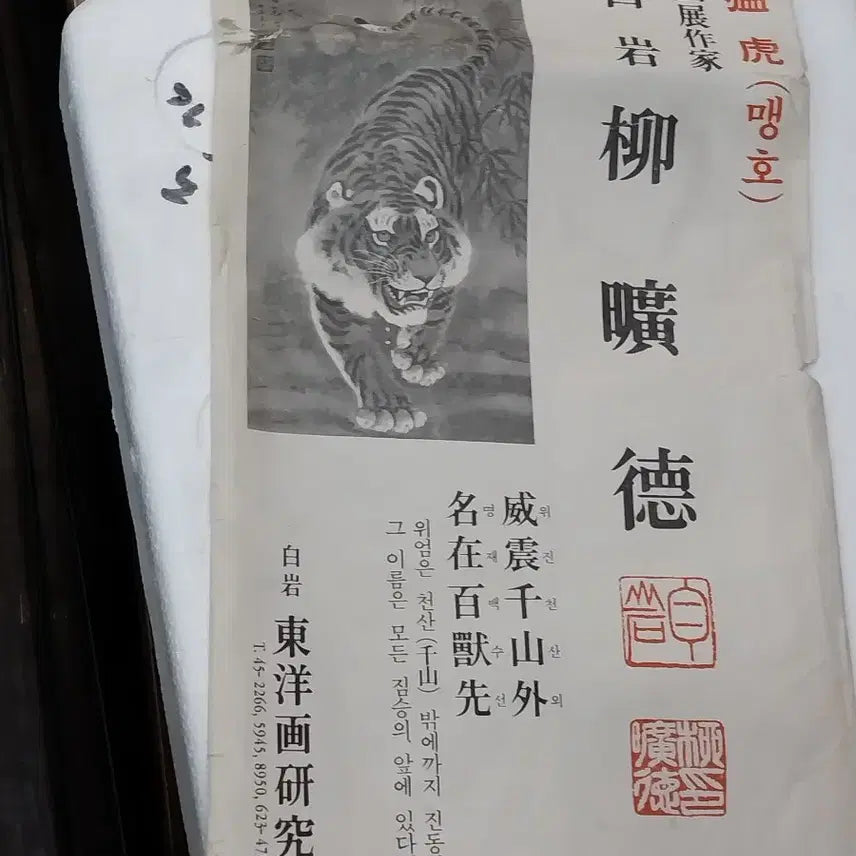 猛虎(맹호)
展作家
白岩
柳曠德
白岩
柳印曠德
威震千山外
위진천산외
名在百獸先
명재백수선
위엄은 천산(千山) 밖에까지 진동
그 이름은 모든 짐승의 앞에 있다
白岩 東洋画研究
T. 45-2266, 5945, 8950, 623-47